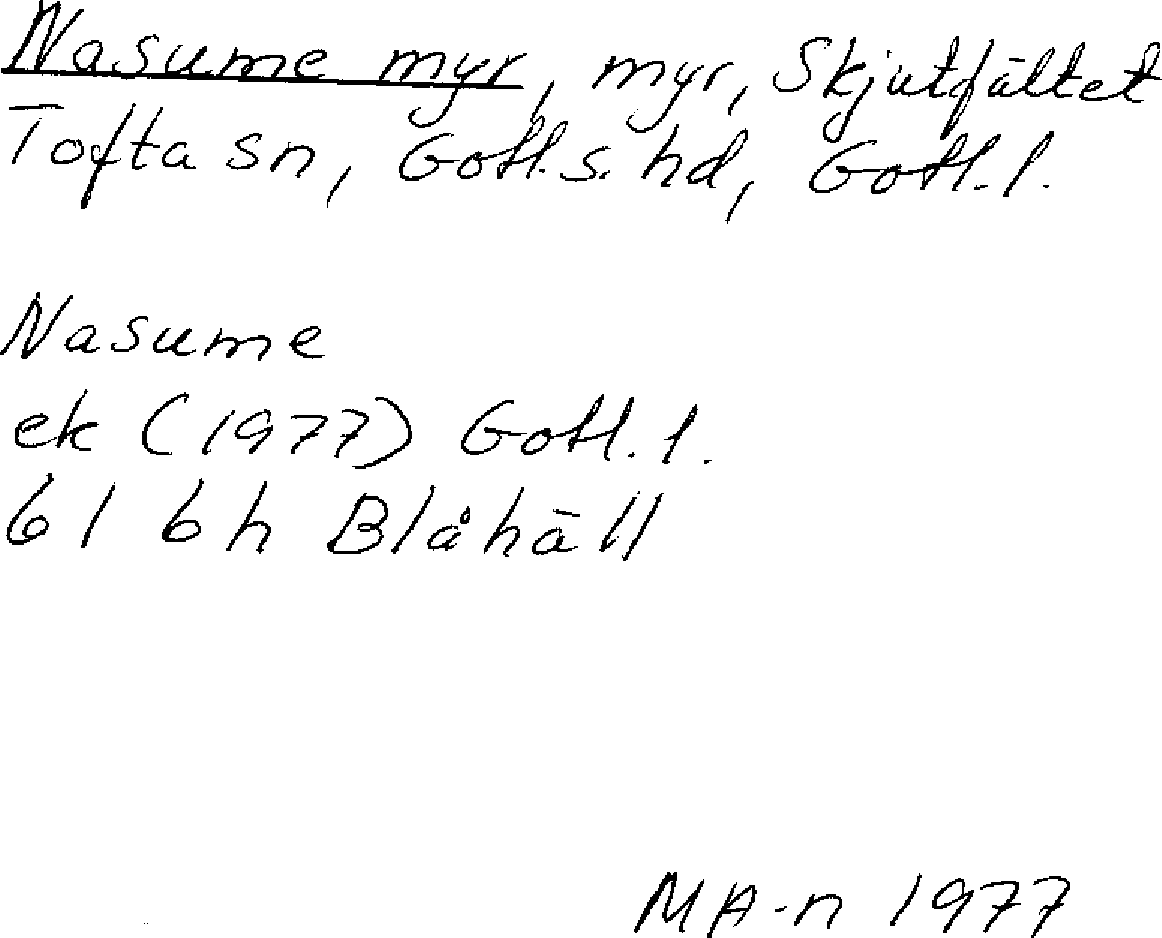 Nasume myr, myr, Skjutfältet
Tofta sn, Gotl. s. hd, Gotl. l.
Nasume
ek (1977) Gotl. l.
6I 6h Blåhäll
MA-n 1977